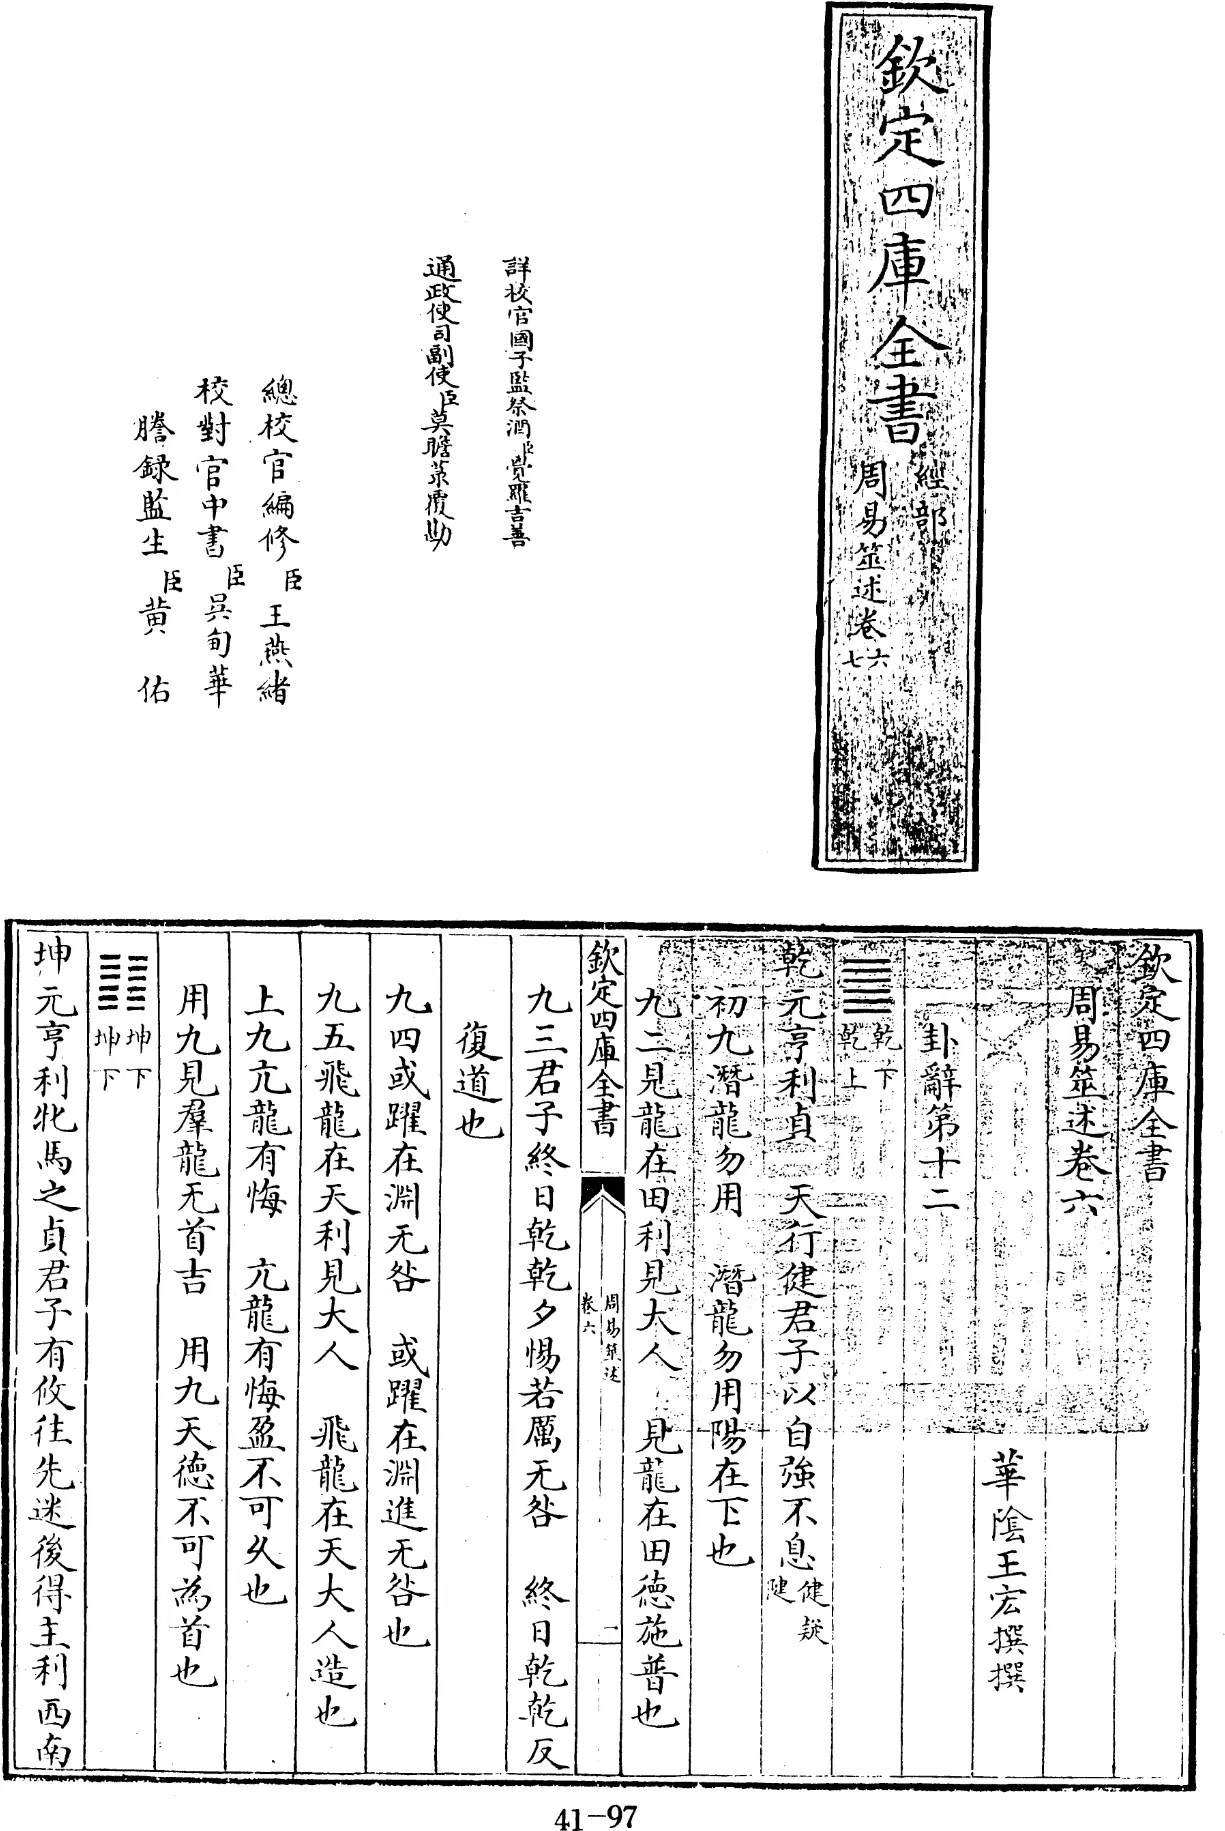 欽定四庫全書
經部
周易筮述卷六
七
詳校官國子監祭酒臣覺羅吉善
通政使司副使臣莫瞻菉覆勘
總校官編修臣王燕緒
校對官中書臣吳甸華
謄録監生臣黄佑
欽定四庫全書
周易筮述卷六
華陰王宏撰撰
卦辭第十二
乾下
乾上
乾元亨利貞 天行健君子以自強不息健疑
䡖
初九潛龍勿用 潛龍勿用陽在下也
九二見龍在田利見大人 見龍在田德施普也
欽定四庫全書
周易筮述
卷六
一
九三君子終日乾乾夕惕若厲无咎 終日乾乾反
復道也
九四或躍在淵无咎 或躍在淵進无咎也
九五飛龍在天利見大人 飛龍在天大人造也
上九亢龍有悔 亢龍有悔盈不可久也
用九見羣龍无首吉 用九天德不可為首也
坤下
坤下
坤元亨利牝馬之貞君子有攸往先迷後得主利西南
41-97